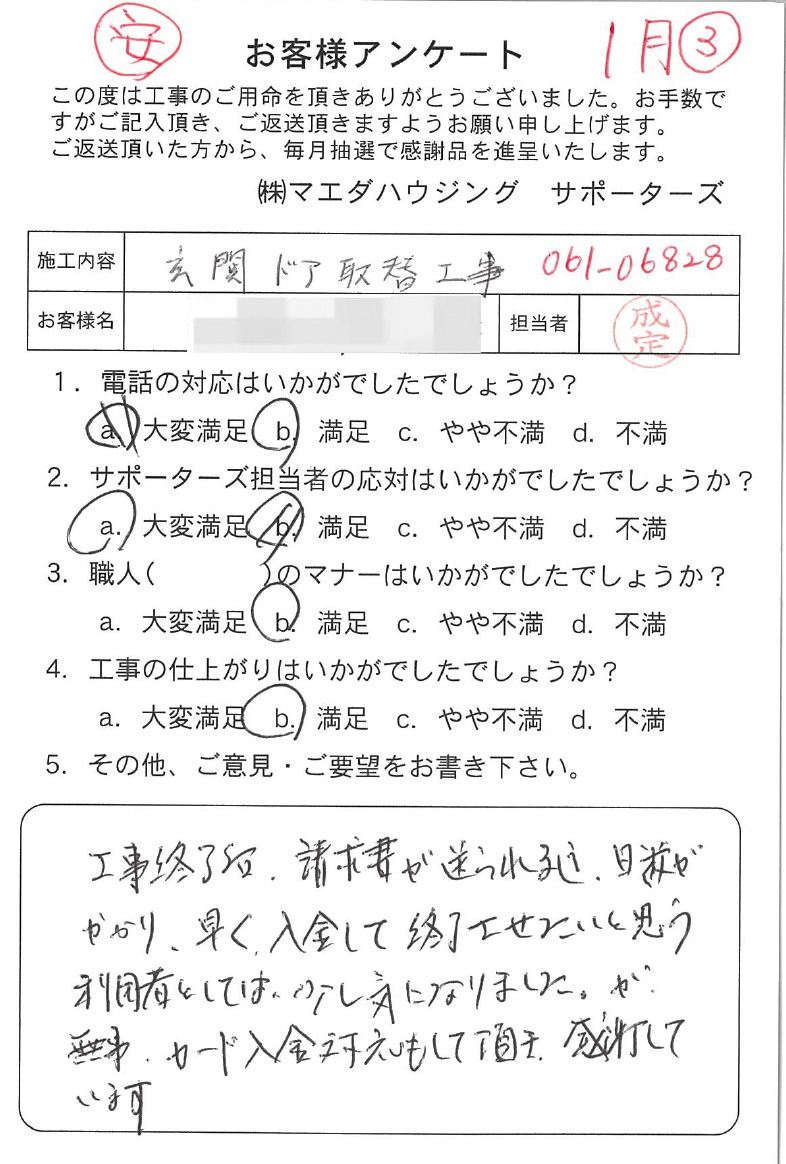 安
1月③
お客様アンケート
この度は工事のご用命を頂きありがとうございました。お手数で
すがご記入頂き、ご返送頂きますようお願い申し上げます。
ご返送頂いた方から、毎月抽選で感謝品を進呈いたします。
㈱マエダハウジング サポーターズ
施工内容 玄関ドア取替工事 061-06828
お客様名 担当者 成定
1. 電話の対応はいかがでしたでしょうか？
a. 大変満足 b. 満足 c. やや不満 d. 不満
2. サポーターズ担当者の応対はいかがでしたでしょうか？
a. 大変満足 b. 満足 c. やや不満 d. 不満
3. 職人( )のマナーはいかがでしたでしょうか？
a. 大変満足 b. 満足 c. やや不満 d. 不満
4. 工事の仕上がりはいかがでしたでしょうか？
a. 大変満足 b. 満足 c. やや不満 d. 不満
5. その他、ご意見・ご要望をお書き下さい。
工事終了后、請求書が送られる迄、日数が
かかり、早く、入金して終了させたいと思う
利用者としては、少し気になりました。が、
無事、カード入金対応もして頂き、感謝して
います